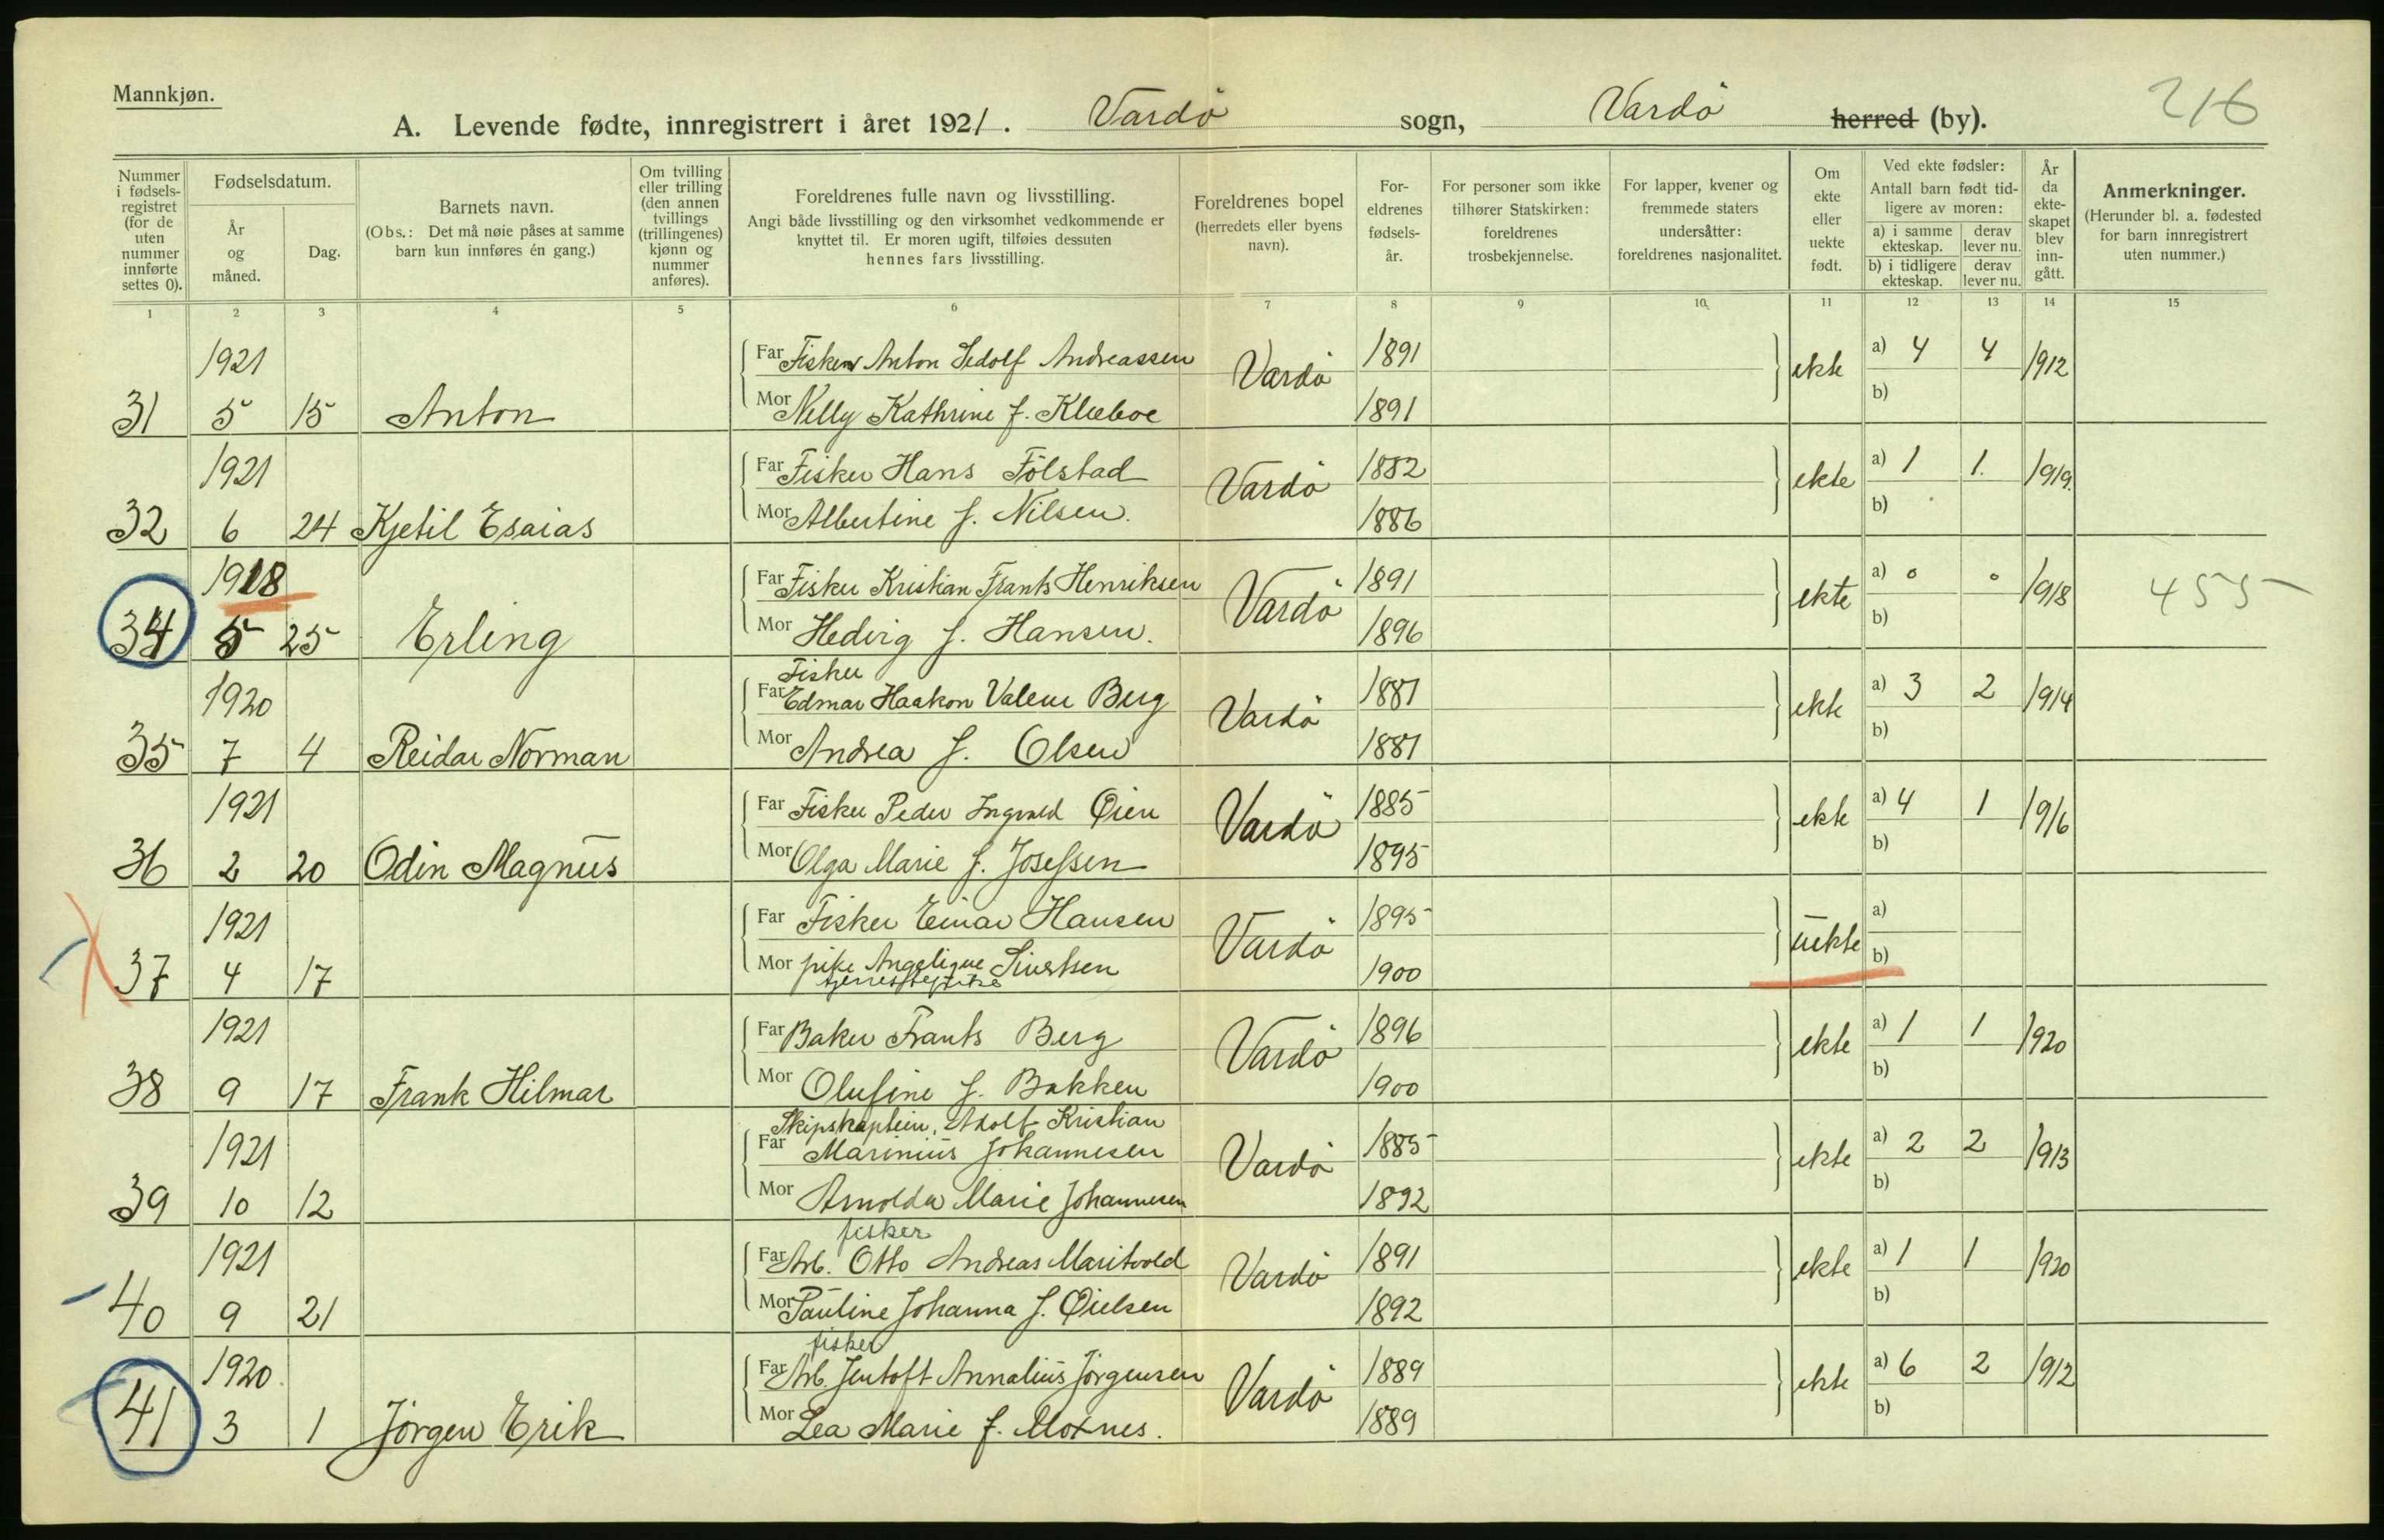 Mannkjøn.
216
A. Levende fødte, innregistrert i året 1921. Vardö sogn, Vardö herred (by).
Nummer i fødselsregistret (for de uten nummer innførte settes 0).
Fødselsdatum.
År og måned.
Dag.
Barnets navn.
(Obs.: Det må nøie påses at samme barn kun innføres én gang.)
Om tvilling eller trilling (den annen tvillings (trillingenes) kjønn og nummer anføres).
Foreldrenes fulle navn og livsstilling.
Angi både livsstilling og den virksomhet vedkommende er knyttet til. Er moren ugift, tilføies dessuten hennes fars livsstilling.
Foreldrenes bopel (herredets eller byens navn).
Foreldrenes fødselsår.
For personer som ikke tilhører Statskirken: foreldrenes trosbekjennelse.
For lapper, kvener og fremmede staters undersåtter: foreldrenes nasjonalitet.
Om ekte eller uekte født.
Ved ekte fødsler:
Antall barn født tidligere av moren:
a) i samme ekteskap.
derav lever nu.
b) i tidligere ekteskap.
derav lever nu.
År da ekteskapet blev inngått.
Anmerkninger.
(Herunder bl. a. fødested for barn innregistrert uten nummer.)
1 2 3 4 5 6 7 8 9 10 11 12 13 14 15
1921 Far Fisker Anton Sedolf Andreassen Vardö 1891 ekte a) 4 4 1912
31 5 15 Anton Mor Nelly Kathrine f. Klæboe 1891 b)
1921 Far Fisker Hans Fölstad Vardö 1882 ekte a) 1 1. 1919.
32 6 24 Kjetil Esaias Mor Albertine f. Nilsen. 1886 b)
1918 Far Fisker Kristian Frants Henriksen Vardö 1891 ekte a) 0 0 1918 455
34 5 25 Erling Mor Hedvig f. Hansen. 1896 b)
Fisker
1920 Far Edmar Haakon Valeur Berg Vardö 1881 ekte a) 3 2 1914
35 7 4 Reidar Norman Mor Andrea f. Olsen 1881 b)
1921 Far Fisker Peder Ingvald Øien Vardö 1885 ekte a) 4 1 1916
36 2 20 Odin Magnus Mor Olga Marie f. Josefsen 1895 b)
1921 Far Fisker Einar Hansen Vardö 1895 uekte a)
37 4 17 Mor pike Angelique Sivertsen 1900 b)
1921 Far Baker Frants Berg Vardö 1896 ekte a) 1 1 1920
38 9 17 Frank Hilmar Mor Olufine f. Bakken 1900 b)
Skipskaptein, Adolf Kristian
1921 Far Marinius Johannesen Vardö 1885 ekte a) 2 2 1913
39 10 12 Mor Arnolda Marie Johannesen 1892 b)
fisker
1921 Far Arb. Otto Andreas Maritvold Vardö 1891 ekte a) 1 1 1920
40 9 21 Mor Pauline Johanna f. Øielsen 1892 b)
fisker
1920. Far Arb. Jentoft Annalius Jörgensen Vardö 1889 ekte a) 6 2 1912
41 3 1 Jörgen Erik Mor Lea Marie f. Moxnes. 1889 b)